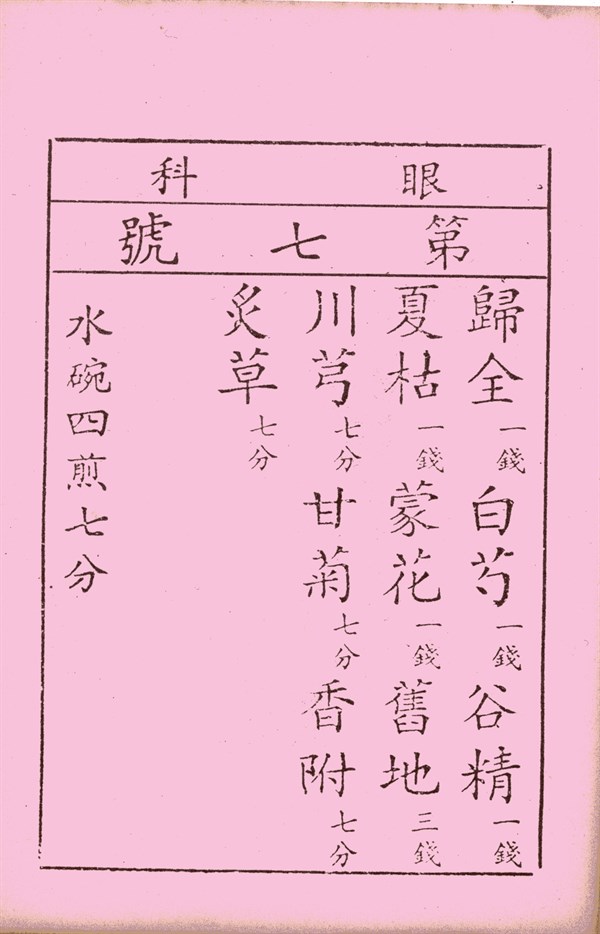 眼科
第七號
歸全一錢 白芍一錢 谷精一錢
夏枯一錢 蒙花一錢 舊地三錢
川芎七分 甘菊七分 香附七分
炙草七分
水碗四煎七分